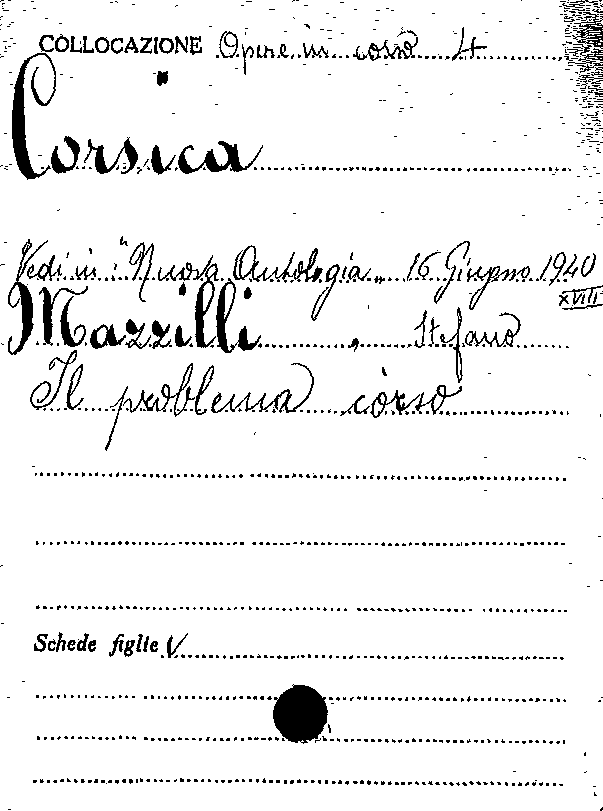 COLLOCAZIONE Opere in corso 4
Corsica
Vedi in: "Nuova Antologia„ 16 Giugno 1940
XVIII
Mazzilli, Stefano
Il problema còrso
Schede figlie V